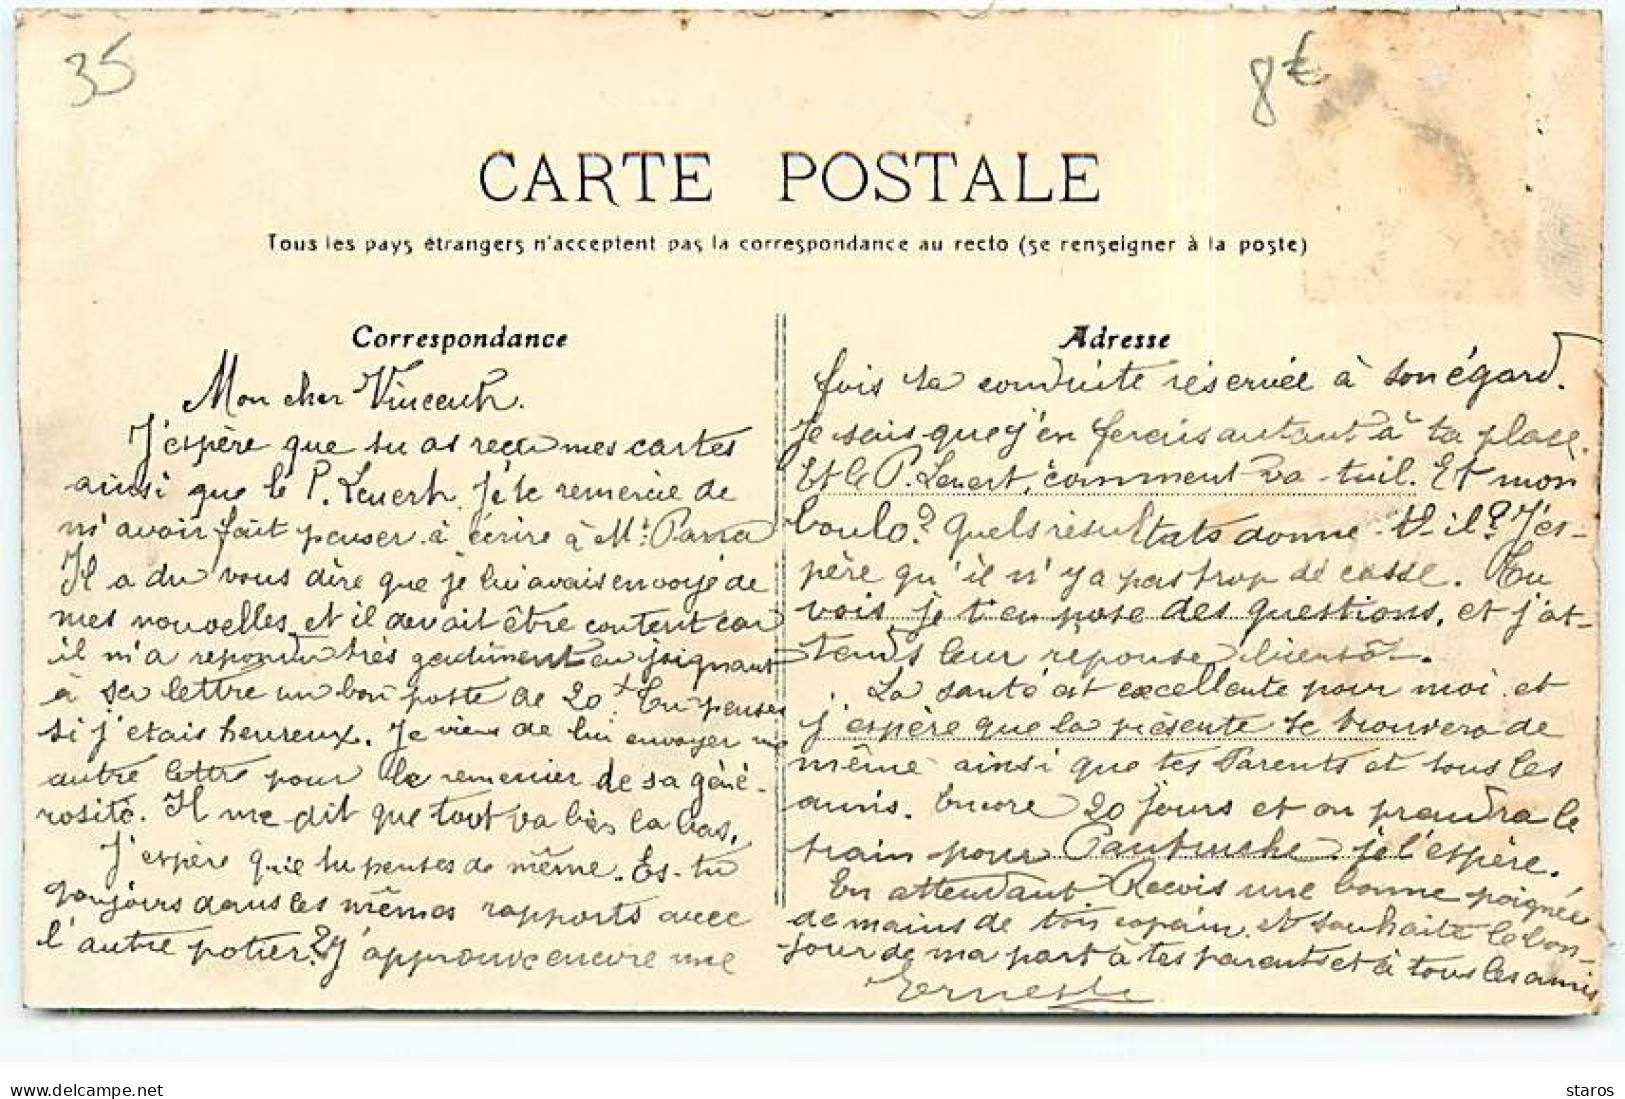 35
8€
CARTE POSTALE
Tous les pays étrangers n'acceptent pas la correspondance au recto (se renseigner à la poste)
Correspondance
Mon cher Vincent.
J'espère que tu as reçu mes cartes
ainsi que le P. Lenert. Je te remercie de
m'avoir fait penser à écrire à Mr.
Il a du vous dire que je lui avais envoyé de
mes nouvelles et il devait être content car
il m'a repondu très gentiment en joignant
à sa lettre un bon poste de 20f. Tu penses
si j'etais heureux. Je viens de lui envoyer une
autre lettre pour le remercier de sa géné-
rosité. Il me dit que tout va bien la bas.
J'espère que tu penses de même. Es-tu
toujours dans les mêmes rapports avec
l'autre potier? J'approuve encore une
Adresse
fois ta conduite réservée à son égard.
Je sais que j'en ferais autant à ta place.
Et le P. Lenert, comment va-t-il. Et mon
boulo? Quels résultats donne-t-il? J'es-
père qu'il n'y a pas trop de casse. Tu
vois je t'en pose des questions, et j'at-
tends leur reponse bientôt.
La santé est excellente pour moi et
j'espère que la présente te trouvera de
même ainsi que tes Parents et tous les
amis. Encore 20 jours et on prendra le
train pour Pantruche. je l'espère.
En attendant Recois une bonne poignée
de mains de ton copain et souhaite le bon-
jour de ma part à tes parents et à tous les amis
Ernest
www.delcampe.net
staros